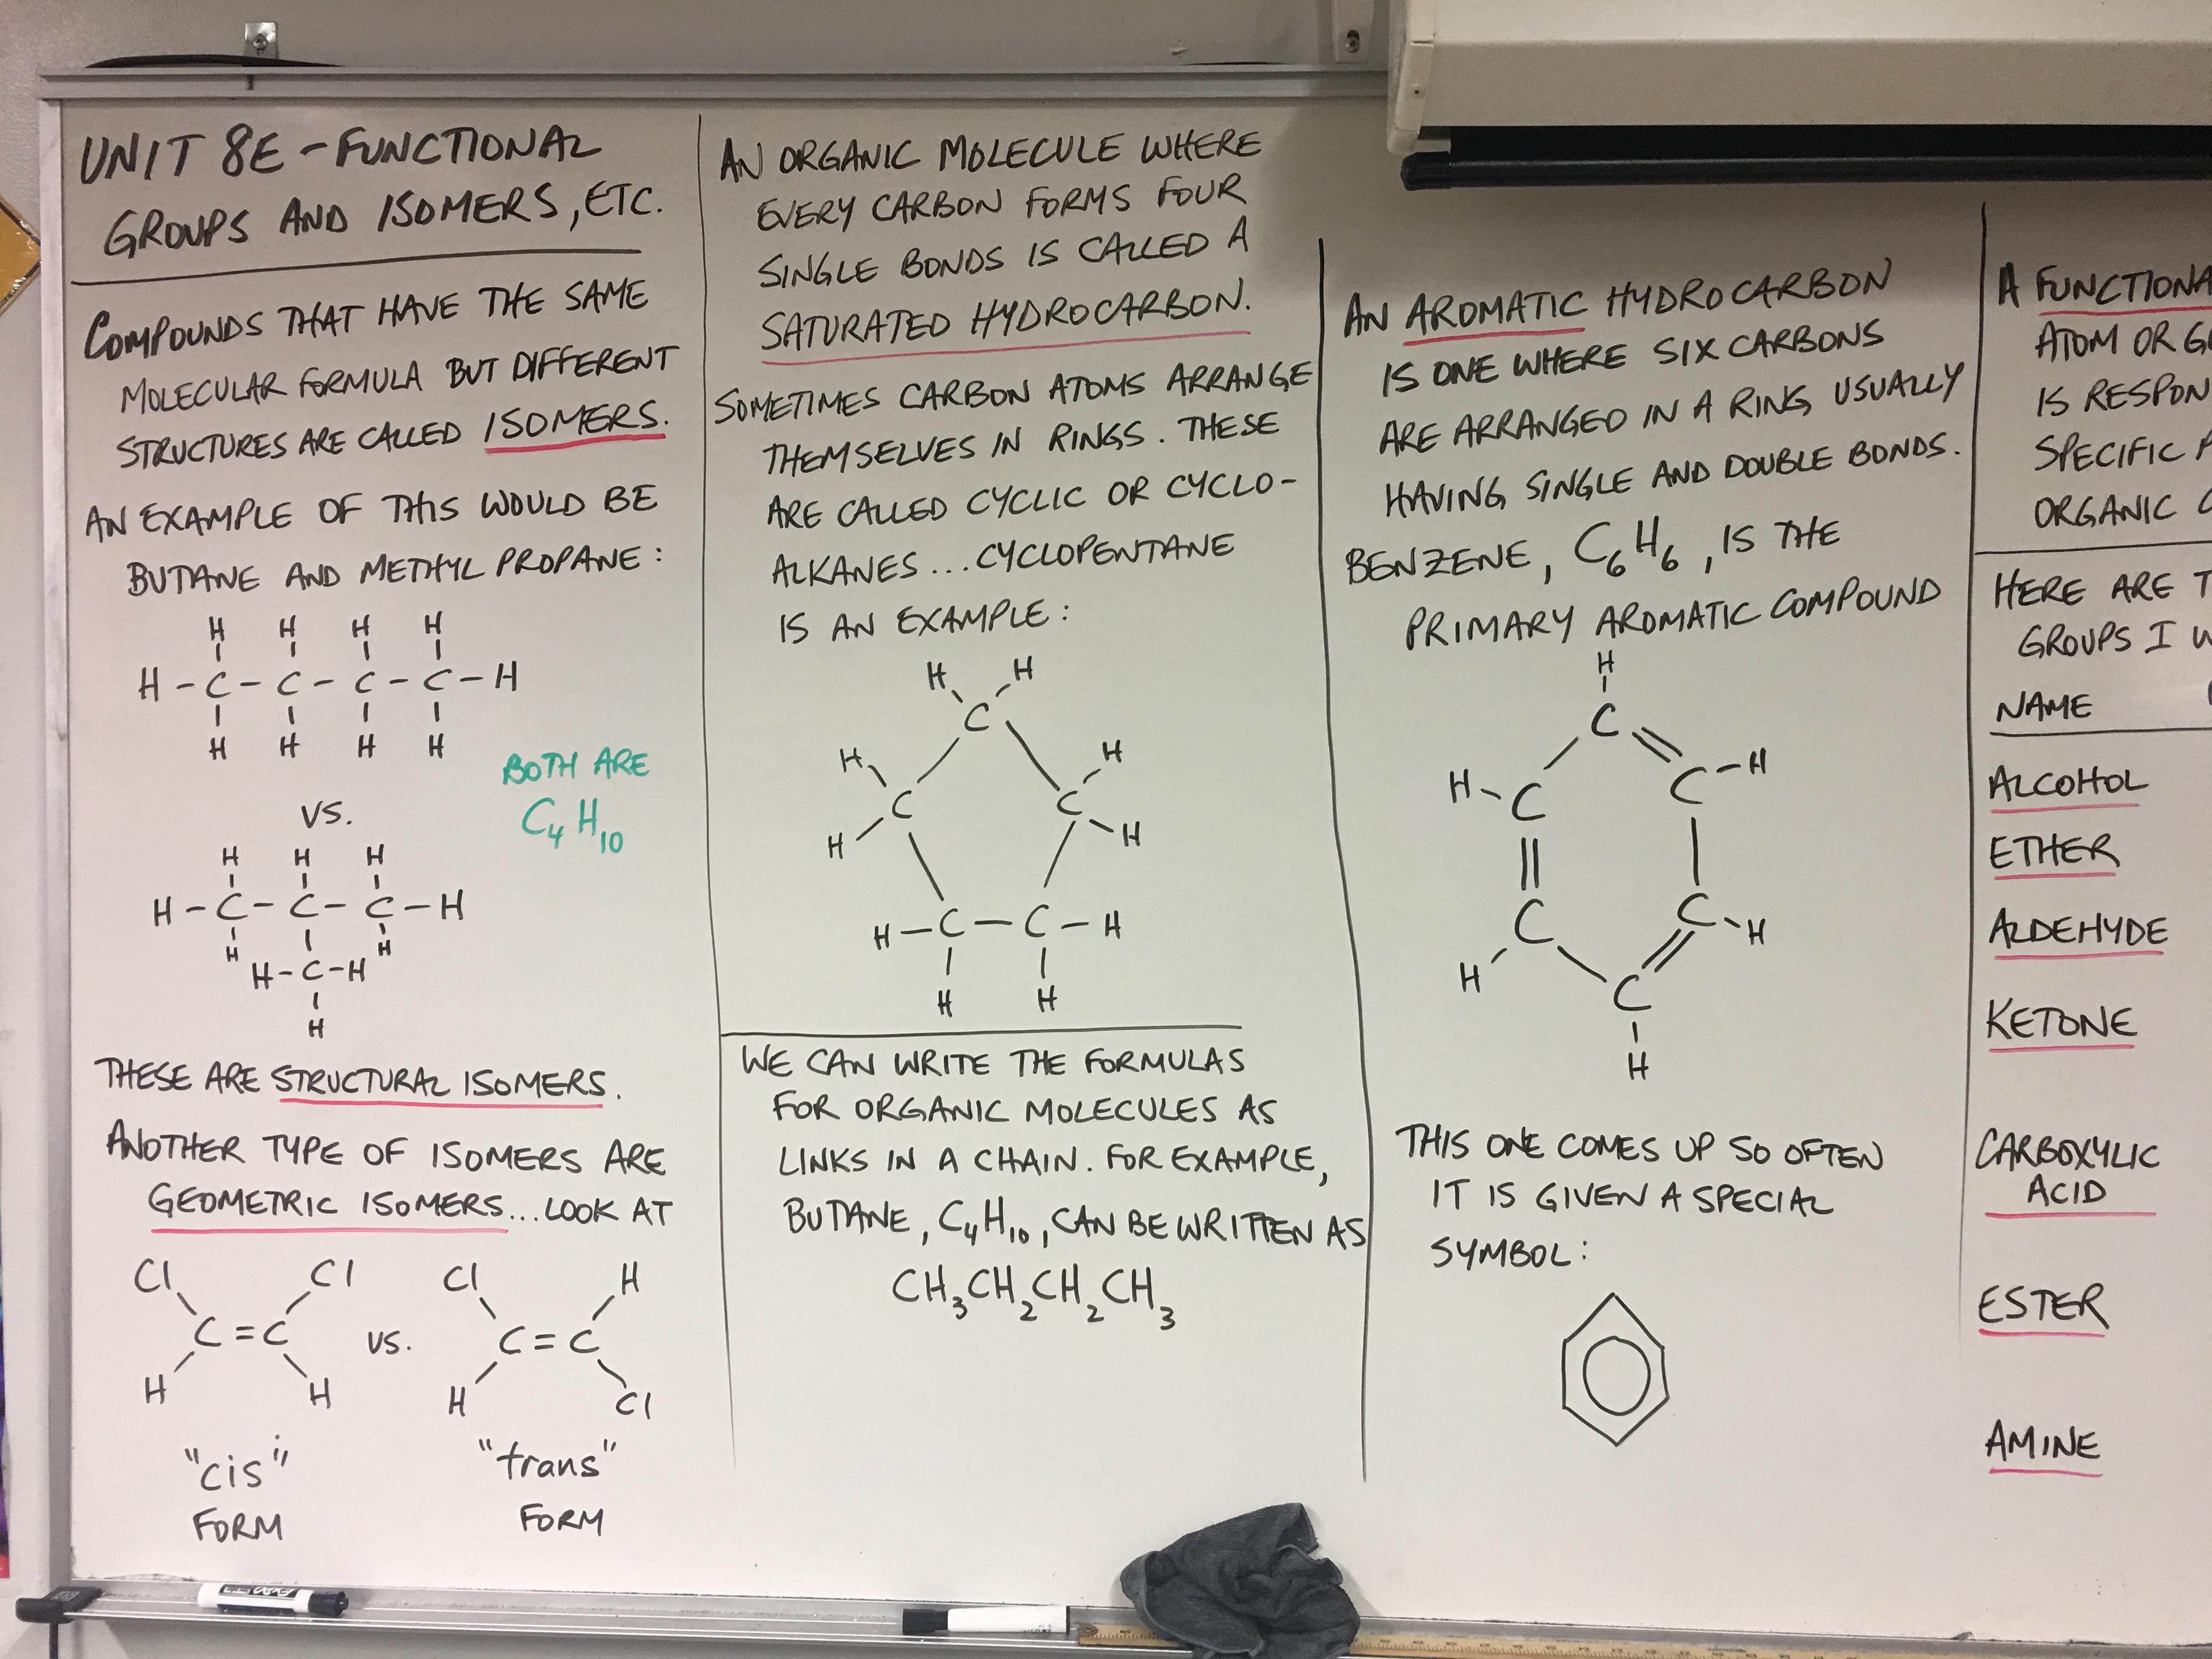 UNIT 8E - FUNCTIONAL
GROUPS AND ISOMERS, ETC.
COMPOUNDS THAT HAVE THE SAME
MOLECULAR FORMULA BUT DIFFERENT
STRUCTURES ARE CALLED ISOMERS.
AN EXAMPLE OF THIS WOULD BE
BUTANE AND METHYL PROPANE:
H H H H
H - C - C - C - C - H
H H H H
BOTH ARE
C4H10
VS.
H H H
H - C - C - C - H
H H
H - C - H
H
THESE ARE STRUCTURAL ISOMERS.
ANOTHER TYPE OF ISOMERS ARE
GEOMETRIC ISOMERS... LOOK AT
Cl Cl Cl H
C = C VS. C = C
H H H Cl
"cis" "trans"
FORM FORM
AN ORGANIC MOLECULE WHERE
EVERY CARBON FORMS FOUR
SINGLE BONDS IS CALLED A
SATURATED HYDROCARBON.
SOMETIMES CARBON ATOMS ARRANGE
THEMSELVES IN RINGS. THESE
ARE CALLED CYCLIC OR CYCLO-
ALKANES... CYCLOPENTANE
IS AN EXAMPLE:
H H
C
H H
C C
H H
H - C - C - H
H H
WE CAN WRITE THE FORMULAS
FOR ORGANIC MOLECULES AS
LINKS IN A CHAIN. FOR EXAMPLE,
BUTANE, C4H10, CAN BE WRITTEN AS
CH3CH2CH2CH3
AN AROMATIC HYDROCARBON
IS ONE WHERE SIX CARBONS
ARE ARRANGED IN A RING, USUALLY
HAVING SINGLE AND DOUBLE BONDS.
BENZENE, C6H6, IS THE
PRIMARY AROMATIC COMPOUND
H
C
H - C C - H
C C - H
H C
H
THIS ONE COMES UP SO OFTEN
IT IS GIVEN A SPECIAL
SYMBOL:
A FUNCTIONA
ATOM OR G
IS RESPON
SPECIFIC
ORGANIC
HERE ARE T
GROUPS I W
NAME
ALCOHOL
ETHER
ALDEHYDE
KETONE
CARBOXYLIC
ACID
ESTER
AMINE
EXPO